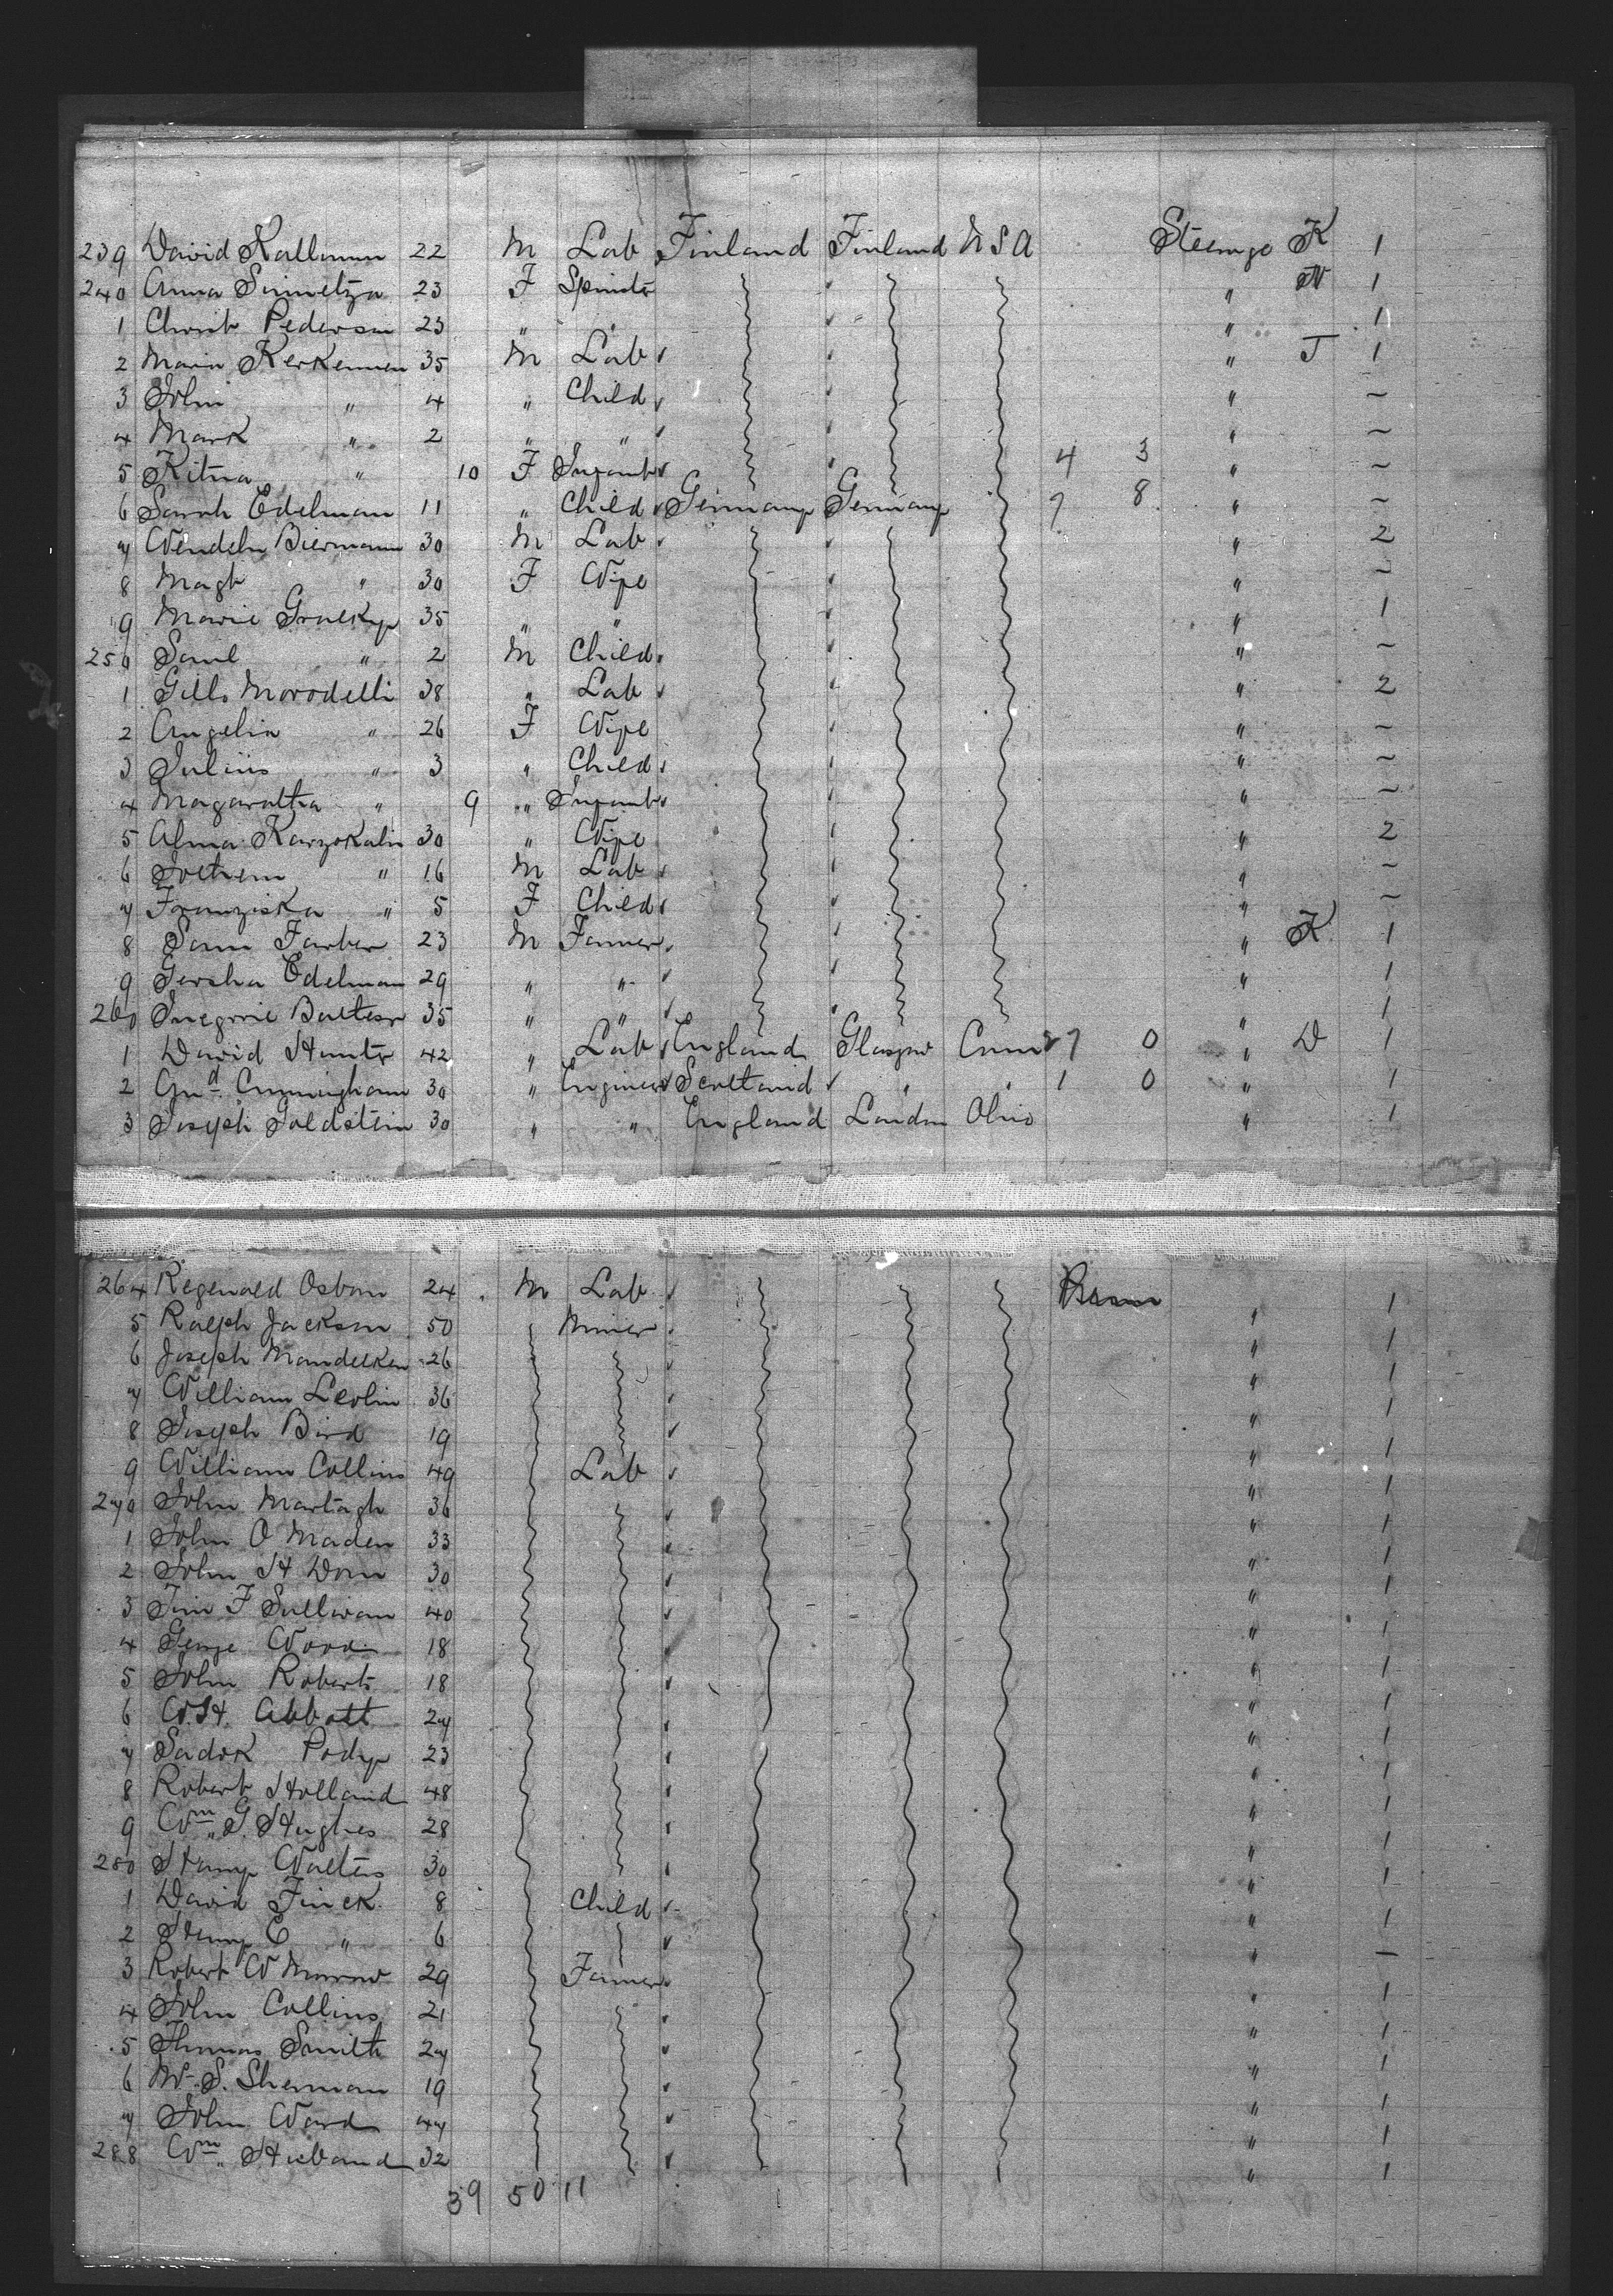 239 David Kallmun 22 M Lab Finland Finland U S A Steerage K 1
240 Anna 23 F Spinster " N 1
1 Christ Pedersen 23 " " " 1
2 Maria Kerkennen 35 M Lab " J 1
3 John " 4 " Child " ~
4 Mark " 2 " " " ~
5 " 10 F Infant 4 3 " ~
6 Sarah Edelman 11 " Child Germany Germany 7 8 " ~
7 Wendeln Biermann 30 M Lab " 2
8 Magt " 30 F Wife " ~
9 Marie 35 " " " 1
250 Saml " 2 M Child " ~
1 Gills Morodelli 38 " Lab " 2
2 Angelia " 26 F Wife " ~
3 Julius " 3 " Child " ~
4 Magaratha " 9 " Infant " ~
5 Alma 30 " Wife " 2
6 " 16 M Lab " ~
7 Franziska " 5 F Child " ~
8 Sam Farber 23 M Farmer " K 1
9 Gersha Edelman 29 " " " 1
260 35 " " " 1
1 David Hunter 42 " Lab England Glasgow Conn 7 0 " D 1
2 Cunningham 30 " Engineer Scotland " " 1 0 " 1
3 Joseph Goldstein 30 " " England London Ohio " 1
264 Regenald Osborn 24 M Lab " 1
5 Ralph Jackson 50 Miner " 1
6 Joseph 26 " 1
7 William 36 " 1
8 Joseph Bird 19 " 1
9 William Collins 49 Lab " 1
270 John Martagh 36 " 1
1 John O Maden 33 " 1
2 John H Dorn 30 " 1
3 Tim F Sullivan 40 " 1
4 George Wood 18 " 1
5 John Roberts 18 " 1
6 W.H. Abbott 27 " 1
7 23 " 1
8 Robert Holland 48 " 1
9 Wm G. Hughes 28 " 1
280 Walters 30 " 1
1 David Finck 8 Child " 1
2 Henry E " 6 " —
3 Robert W Morrow 29 Farmer " 1
4 John Collins 21 " 1
5 Thomas Smith 27 " 1
6 S. Sherman 19 " 1
7 John Ward 47 " 1
288 Wm Husband 32 " 1
39 50 11